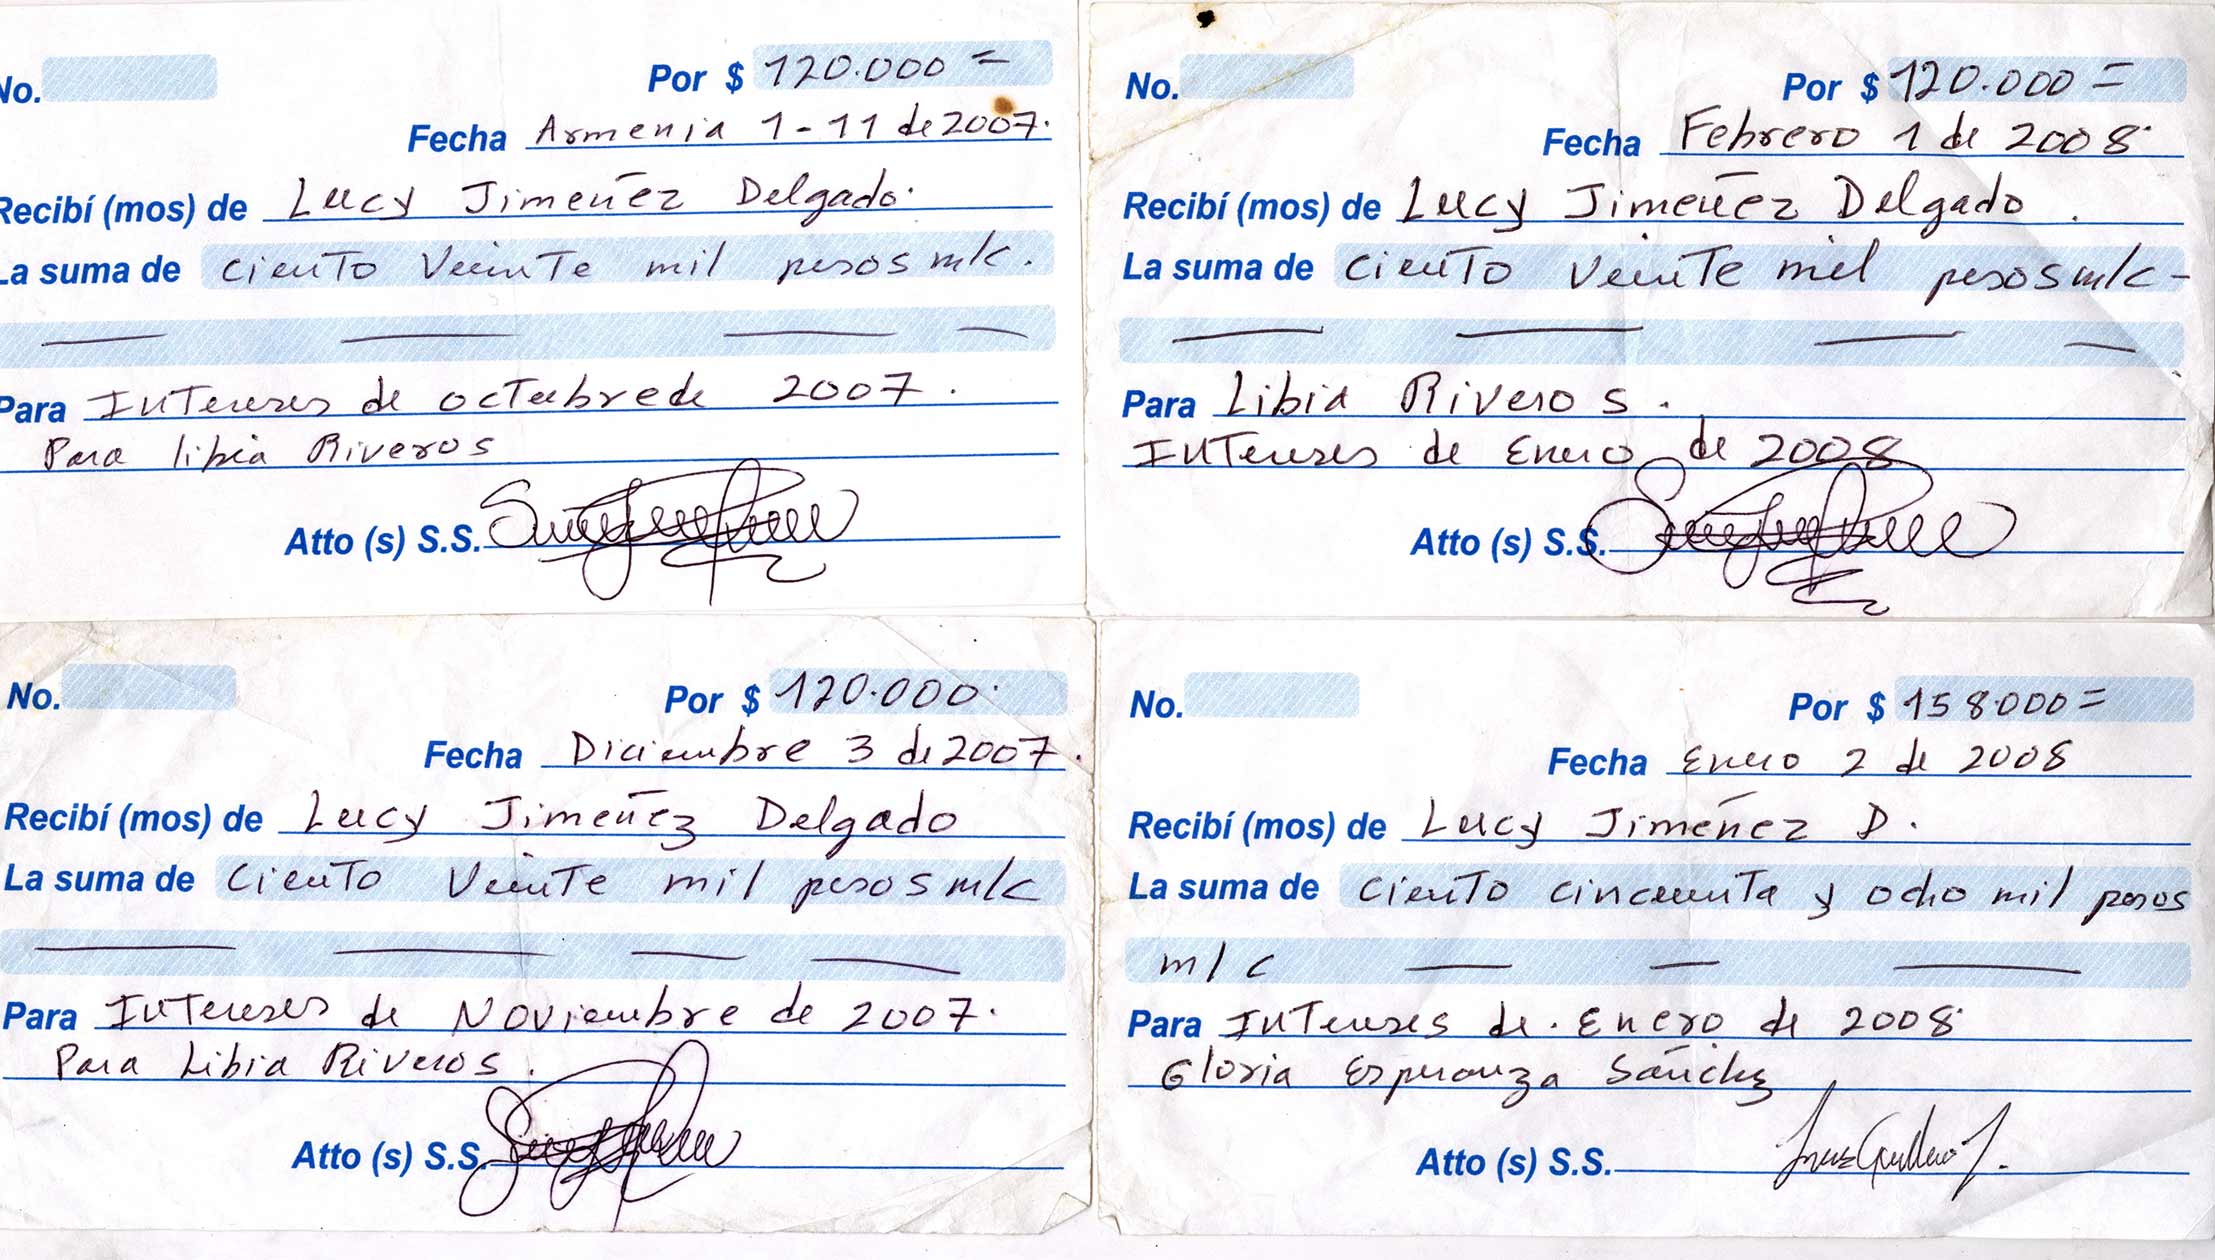 No.
Por $ 120.000 =
Fecha Armenia 1-11 de 2007.
Recibí (mos) de Lucy Jimeñez Delgado.
La suma de ciento veinte mil pesos m/c.
Para Intereses de octubre de 2007.
Para libia Riveros
Atto (s) S.S.
No.
Por $ 120.000 =
Fecha Febrero 1 de 2008.
Recibí (mos) de Lucy Jimeñez Delgado.
La suma de ciento veinte mil pesos m/c -
Para Libia Riveros.
Intereses de Enero de 2008
Atto (s) S.S.
No.
Por $ 120.000.
Fecha Diciembre 3 de 2007.
Recibí (mos) de Lucy Jimeñez Delgado
La suma de ciento veinte mil pesos m/c
Para Intereses de Noviembre de 2007.
Para Libia Riveros.
Atto (s) S.S.
No.
Por $ 158.000 =
Fecha Enero 2 de 2008
Recibí (mos) de Lucy Jimeñez D.
La suma de ciento cincuenta y ocho mil pesos
m/c
Para Intereses de. Enero de 2008.
Gloria Esperanza Sánchez
Atto (s) S.S.